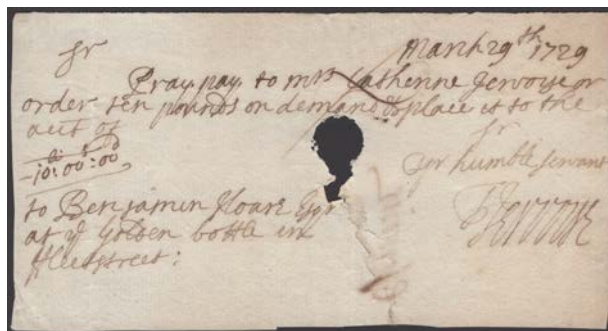 Sr March 29th 1729
Pray pay to mrs Catherine Jervoise or
order ten pounds on demand & place it to the
acct of Sr
l s d
10:00:00 yor humble servant
to Benjamin Hoare Esqr Jervoise
at ye Golden bottle in
fleetstreet: